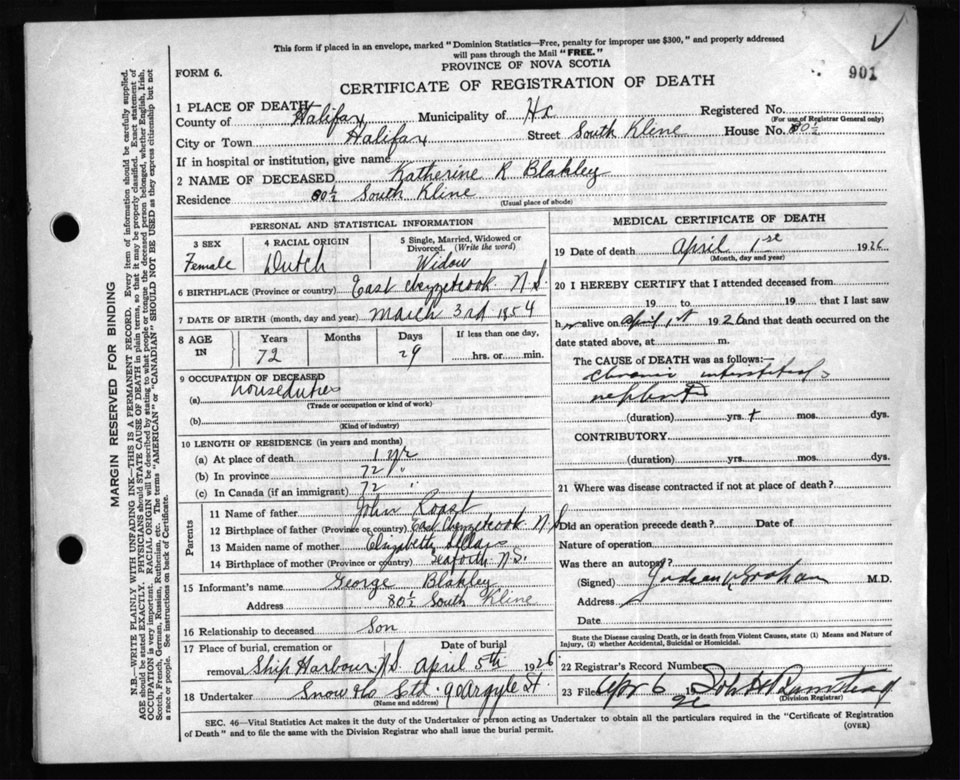 This form if placed in an envelope, marked "Dominion Statistics—Free, penalty for improper use $300," and properly addressed
will pass through the Mail "FREE."
PROVINCE OF NOVA SCOTIA
901
FORM 6.
CERTIFICATE OF REGISTRATION OF DEATH
1 PLACE OF DEATH
County of Halifax Municipality of Hx Registered No.
(For use of Registrar General only)
City or Town Halifax Street South Kline House No. 80½
If in hospital or institution, give name
2 NAME OF DECEASED Katherine R Blakley
Residence 80½ South Kline
(Usual place of abode)
PERSONAL AND STATISTICAL INFORMATION
3 SEX 4 RACIAL ORIGIN 5 Single, Married, Widowed or
Divorced. (Write the word)
Female Dutch Widow
6 BIRTHPLACE (Province or country) East Chezzetcook N.S.
7 DATE OF BIRTH (month, day and year) March 3rd 1854
8 AGE IN Years Months Days If less than one day,
72 29 hrs. or min.
9 OCCUPATION OF DECEASED
(a) houseduties
(Trade or occupation or kind of work)
(b)
(Kind of industry)
10 LENGTH OF RESIDENCE (in years and months)
(a) At place of death 1 yr
(b) In province 72 "
(c) In Canada (if an immigrant) 72 "
Parents
11 Name of father John Roast
12 Birthplace of father (Province or country) East Chezzetcook N.S.
13 Maiden name of mother Elizabeth
14 Birthplace of mother (Province or country) Seaforth N.S.
15 Informant's name George Blakley
Address 80½ South Kline
16 Relationship to deceased Son
17 Place of burial, cremation or Date of burial
removal Ship Harbour N.S. April 5th 1926
18 Undertaker Snow & Co Ltd. 90 Argyle St.
(Name and address)
MEDICAL CERTIFICATE OF DEATH
19 Date of death April 1st 1926
(Month, day and year)
20 I HEREBY CERTIFY that I attended deceased from
19 to 19 that I last saw
h alive on April 1st 1926 and that death occurred on the
date stated above, at m.
The CAUSE OF DEATH was as follows:—
Chronic interstitial
nephritis
(duration) yrs. mos. dys.
CONTRIBUTORY
(duration) yrs. mos. dys.
21 Where was disease contracted if not at place of death?
Did an operation precede death? Date of
Nature of operation
Was there an autopsy?
(Signed) Judson Graham M.D.
Address
Date
State the Disease causing Death, or in death from Violent Causes, state (1) Means and Nature of
Injury, (2) whether Accidental, Suicidal or Homicidal.
22 Registrar's Record Number
23 Filed Apr 6 19 26
(Division Registrar)
SEC. 46—Vital Statistics Act makes it the duty of the Undertaker or person acting as Undertaker to obtain all the particulars required in the "Certificate of Registration
of Death" and to file the same with the Division Registrar who shall issue the burial permit.
(OVER)
MARGIN RESERVED FOR BINDING
N.B.—WRITE PLAINLY WITH UNFADING INK—THIS IS A PERMANENT RECORD. Every item of information should be carefully supplied.
AGE should be stated EXACTLY. PHYSICIANS should STATE CAUSE OF DEATH in plain terms, so that it may be properly classified. Exact statement of
OCCUPATION is very important. RACIAL ORIGIN will be described by stating to what people or tongue the deceased person belonged, whether English, Irish,
Scotch, French, German, Russian, Ruthenian, etc. The terms "AMERICAN" or "CANADIAN" SHOULD NOT BE USED as they express citizenship but not
a race or people. See instructions on back of Certificate.